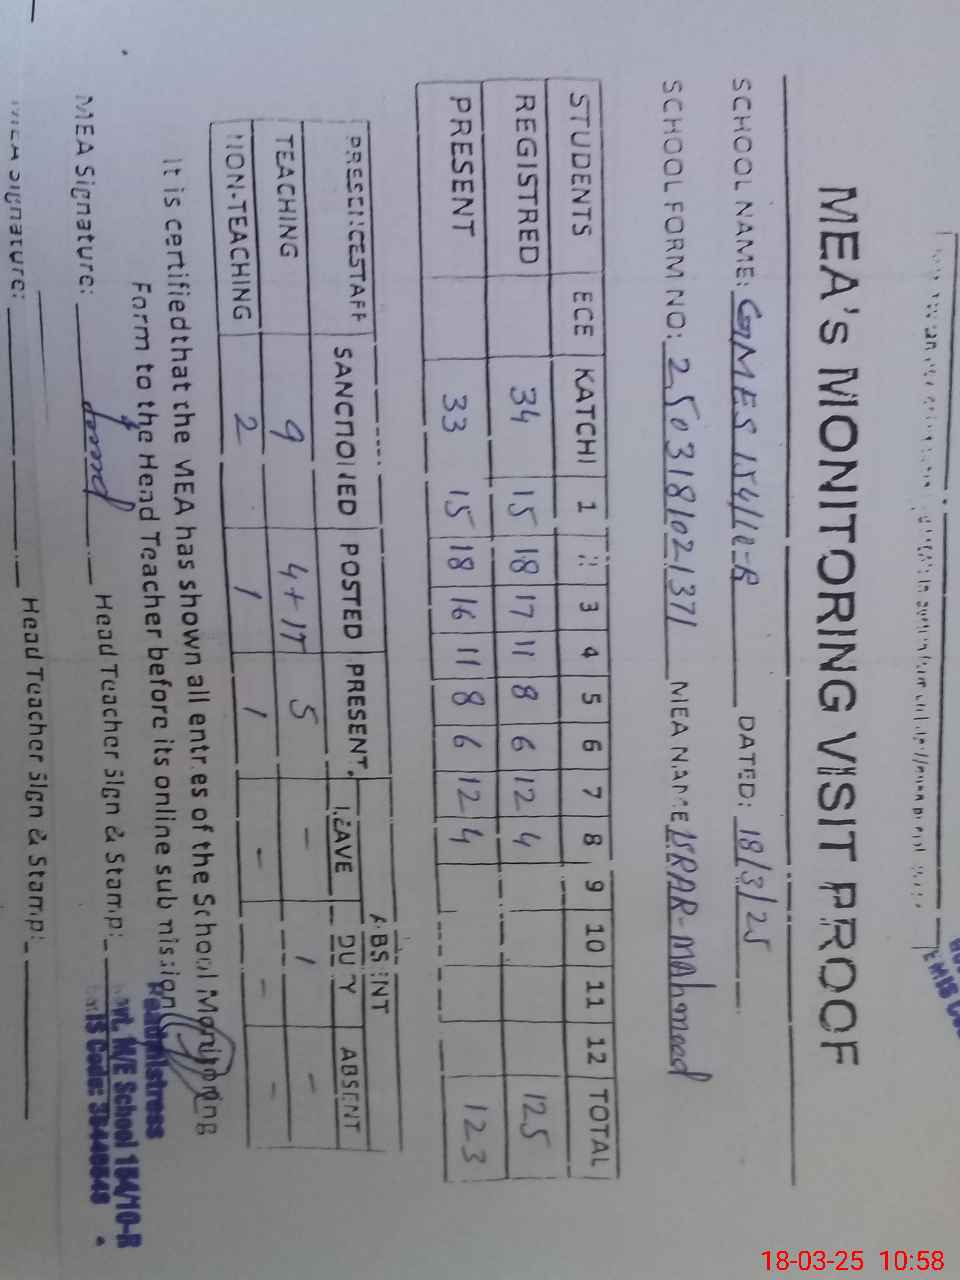 MEA's MONITORING VISIT PROOF
SCHOOL NAME: GMES 154/10-R DATED: 18/3/25
SCHOOL FORM NO: 2503181021371 MEA NAME ISRAR-MAhmood
STUDENTS ECE KATCHI 1 2 3 4 5 6 7 8 9 10 11 12 TOTAL
REGISTRED 34 15 18 17 11 8 6 12 4 125
PRESENT 33 15 18 16 11 8 6 12 4 123
ABSENT
PRESENCESTAFF SANCTIONED POSTED PRESENT LEAVE DUTY ABSENT
TEACHING 9 4+1T 5 - 1 -
NON-TEACHING 2 1 1 - - -
It is certified that the MEA has shown all entries of the School Monitoring
Form to the Head Teacher before its online submission
Headmistress
MEA Signature: Head Teacher Sign & Stamp:
Govt. M/E School 154/10-R
EMIS Code:
MEA Signature: Head Teacher Sign & Stamp:
18-03-25 10:58